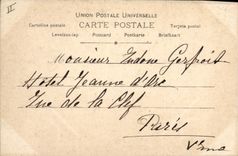 II
UNION POSTALE UNIVERSELLE
CARTE POSTALE
Cartolina postale
Tarjeta postal
Levelezö-lap Postcard Postkarte Briefkaart
Monsieur
Hotel Jeanne d'Arc
Rue de la Clef
Paris